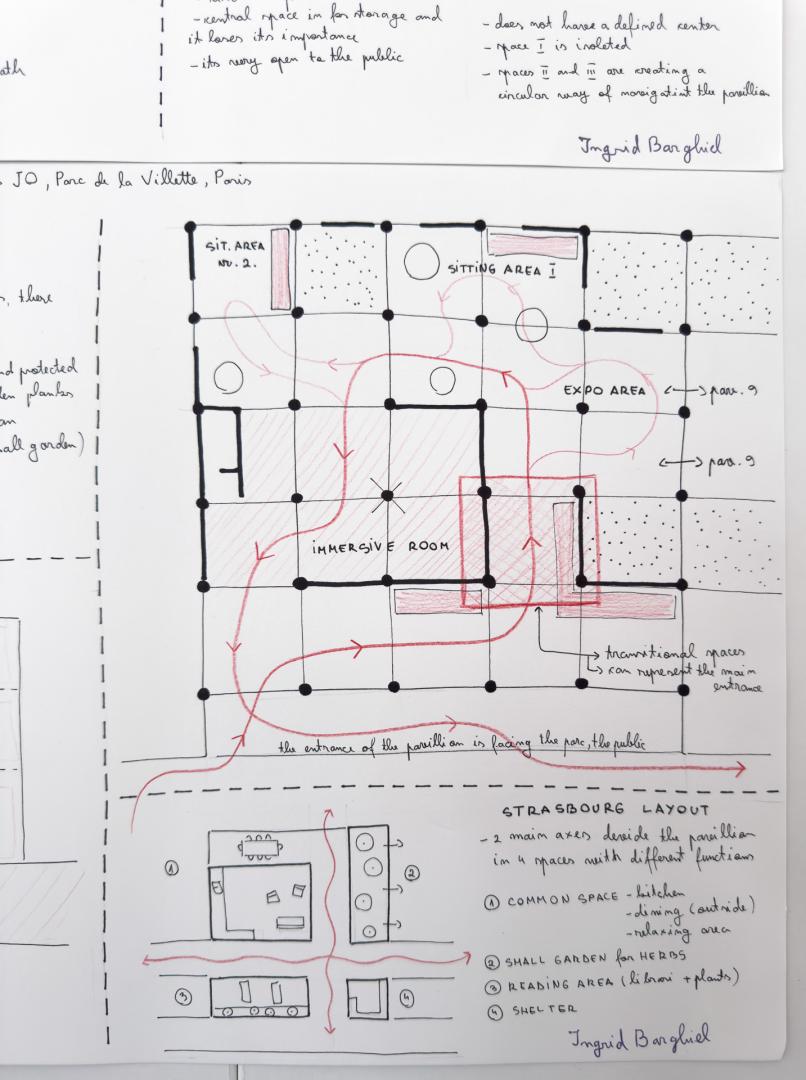 - central space in for storage and
it loses its importance
- its very open to the public
ath
- does not have a defined center
- space I is isolated
- spaces II and III are creating a
circular way of
Ingrid Barghiel
JO, Parc de la Villette, Paris
, there
nd protected
plants
an
all garden)
SIT. AREA
NR. 2.
SITTING AREA I
EXPO AREA
pav. 9
pav. 9
IMMERSIVE ROOM
transitional spaces
can represent the main
entrance
the entrance of the pavillion is facing the parc, the public
STRASBOURG LAYOUT
- 2 main axes devide the pavillion
in 4 spaces with different functions
① COMMON SPACE - kitchen
- dining (outside)
- relaxing area
② SMALL GARDEN for HERBS
③ READING AREA (librari + plants)
④ SHELTER
1
2
3
4
Ingrid Barghiel